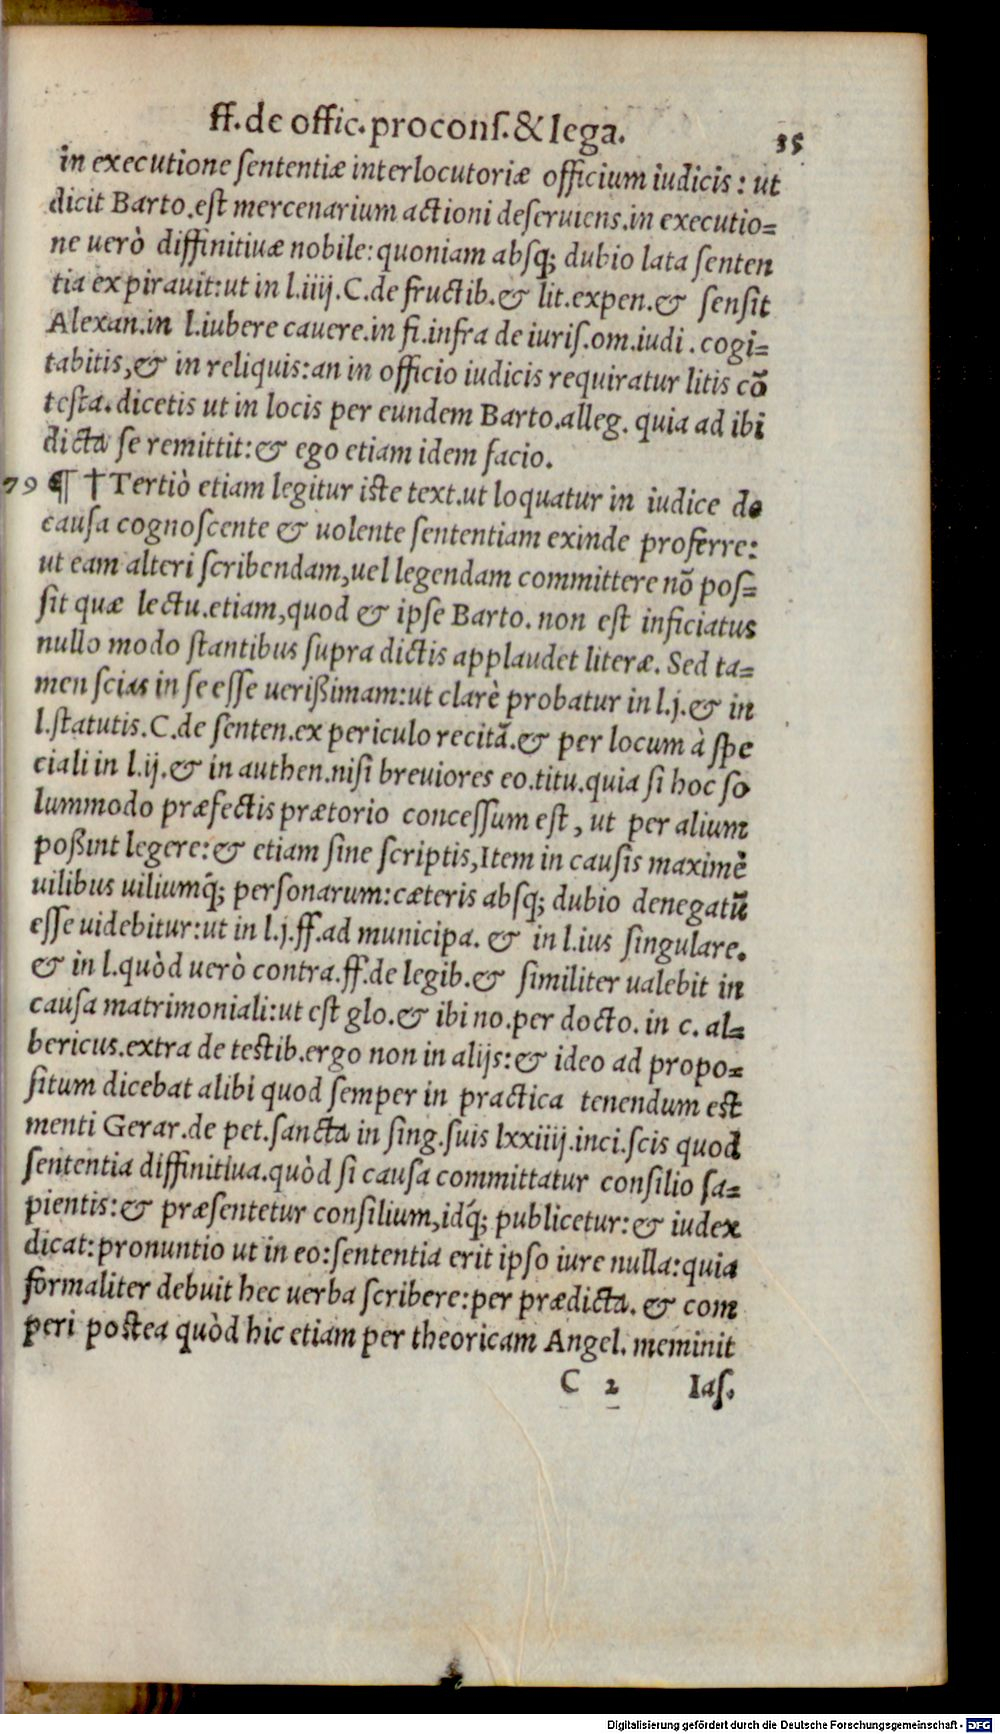 ff.de offic.procons.& lega. 35
in executione ſententiæ interlocutoriæ officium iudicis : ut
dicit Barto.eſt mercenarium actioni deſeruiens.in executio=
ne uerò diffinitiuæ nobile: quoniam abſq; dubio lata ſenten
tia expirauit:ut in l.iiij.C.de fructib.& lit.expen.& ſenſit
Alexan.in l.iubere cauere.in fi.infra de iuriſ.om.iudi . cogi=
tabitis,& in reliquis:an in officio iudicis requiratur litis cō
teſta.dicetis ut in locis per eundem Barto.alleg. quia ad ibi
dicta ſe remittit:& ego etiam idem facio.
79 ¶ †Tertiò etiam legitur iſte text.ut loquatur in iudice de
cauſa cognoſcente & uolente ſententiam exinde proferre:
ut eam alteri ſcribendam,uel legendam committere nō poſ=
ſit quæ lectu.etiam,quod & ipſe Barto. non eſt inficiatus
nullo modo ſtantibus ſupra dictis applaudet literæ. Sed ta=
men ſcias in ſe eſſe uerißimam:ut clarè probatur in l.j.& in
l.ſtatutis.C.de ſenten.ex periculo recitā.& per locum à ſpe
ciali in l.ij.& in authen.niſi breuiores eo.titu.quia ſi hoc ſo
lummodo præfectis prætorio conceſſum eſt , ut per alium
poßint legere:& etiam ſine ſcriptis,Item in cauſis maximè
uilibus uiliumq́; perſonarum:cæteris abſq; dubio denegatū
eſſe uidebitur:ut in l.j.ff.ad municipa. & in l.ius ſingulare.
& in l.quòd uerò contra.ff.de legib.& ſimiliter ualebit in
cauſa matrimoniali:ut eſt glo.& ibi no.per docto. in c. al=
bericus.extra de teſtib.ergo non in alijs:& ideo ad propo=
ſitum dicebat alibi quod ſemper in practica tenendum eſt
menti Gerar.de pet.ſancta in ſing.ſuis lxxiiij.inci.ſcis quod
ſententia diffinitiua.quòd ſi cauſa committatur conſilio ſa=
pientis:& præſentetur conſilium,idq́; publicetur:& iudex
dicat:pronuntio ut in eo:ſententia erit ipſo iure nulla:quia
formaliter debuit hec uerba ſcribere:per prædicta. & com
peri poſtea quòd hic etiam per theoricam Angel. meminit
C 2 Iaſ.
Digitalisierung gefördert durch die Deutsche Forschungsgemeinschaft - DFG